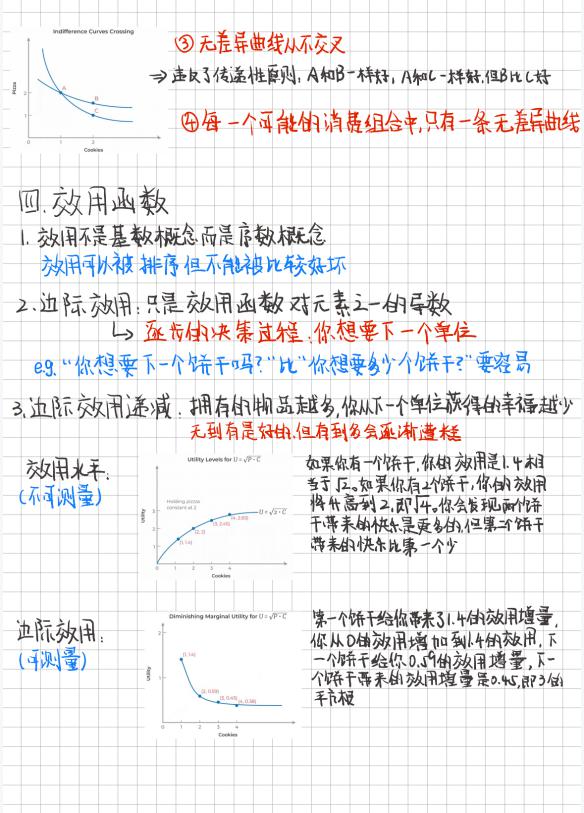 Indifference Curves Crossing
③ 无差异曲线从不交叉
Pizza
A
B
C
2
1
1
2
Cookies
⇒ 违反了传递性原则, A和B一样好, A和C一样好,但B比C好
④ 每一个可能的消费组合中,只有一条无差异曲线
四. 效用函数
1. 效用不是基数概念而是序数概念
效用可以被排序但不能被比较好坏
2. 边际效用:只是效用函数对元素之一的导数
↳ 逐步的决策过程,你想要下一个单位
e.g. “你想要下一个饼干吗?”比“你想要多少个饼干?”要容易
3. 边际效用递减. 拥有的物品越多,你从下一个单位获得的幸福越少
无到有是好的,但有到多会逐渐遭糕
效用水平:
(不可测量)
Utility Levels for U = √P·C
Utility
Holding pizzas
constant at 2
U = √2·C
(4, 2.83)
(3, 2.45)
(2, 2)
(1, 1.4)
3
2
1
0
1
2
3
4
Cookies
如果你有一个饼干,你的效用是1.4相
当于√2。如果你有2个饼干,你的效用
将升高到2,即√4。你会发现两个饼
干带来的快乐是更多的,但第二个饼干
带来的快乐比第一个少
边际效用:
(可测量)
Diminishing Marginal Utility for U = √P·C
Utility
2
1
(1, 1.4)
(2, 0.59)
(3, 0.45)
(4, 0.38)
0
1
2
3
4
Cookies
第一个饼干给你带来了1.4的效用增量,
你从0的效用增加到1.4的效用,下
一个饼干给你0.59的效用增量,下一
个饼干带来的效用增量是0.45,即3的
平方根